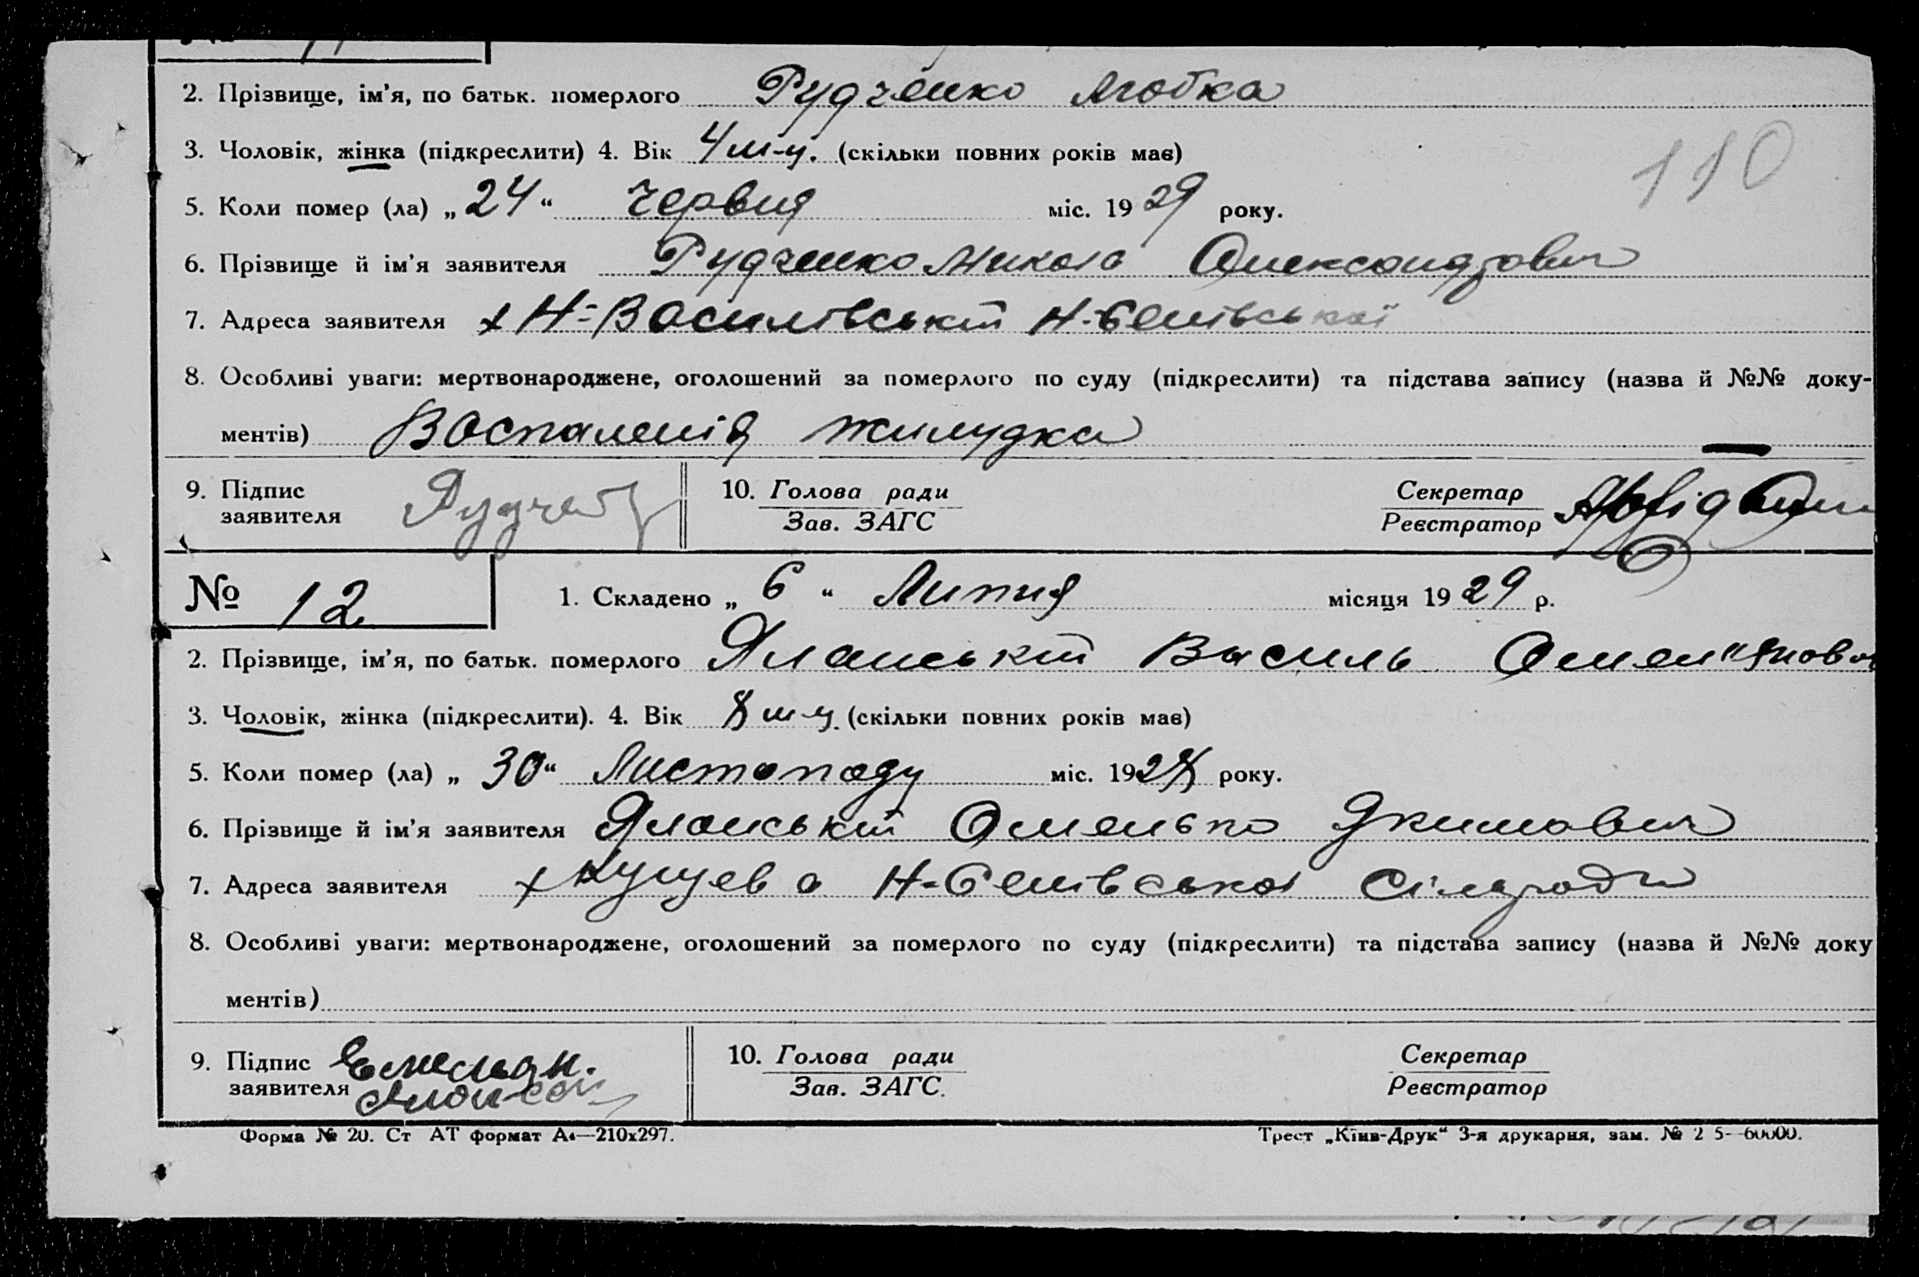 2. Прізвище, ім'я, по батьк. померлого Рудченко Любка
3. Чоловік, жінка (підкреслити) 4. Вік 4 м-ц. (скільки повних років має)
5. Коли помер (ла) „ 24 “ Червня міс. 1929 року.
6. Прізвище й ім'я заявителя Рудченко Микола Олександрович
7. Адреса заявителя х Н-Василівській
8. Особливі уваги: мертвонароджене, оголошений за померлого по суду (підкреслити) та підстава запису (назва й №№ доку-
ментів) Воспаленія жилудка
9. Підпис заявителя
10. Голова ради
Зав. ЗАГС
Секретар
Реєстратор
110
№ 12
1. Складено „ 6 “ Липня місяця 1929 р.
2. Прізвище, ім'я, по батьк. померлого Яланський Василь Омел"янович
3. Чоловік, жінка (підкреслити). 4. Вік 8 м-ц. (скільки повних років має)
5. Коли помер (ла) „ 30 “ Листопаду міс. 1928 року.
6. Прізвище й ім'я заявителя Яланський Омелько Якимович
7. Адреса заявителя х Сілради
8. Особливі уваги: мертвонароджене, оголошений за померлого по суду (підкреслити) та підстава запису (назва й №№ доку
ментів)
9. Підпис заявителя Емельян.
10. Голова ради
Зав. ЗАГС.
Секретар
Реєстратор
Форма № 20. Ст АТ формат А4—210х297.
Трест „Київ-Друк“ 3-я друкарня, зам. № 2 5—60000.